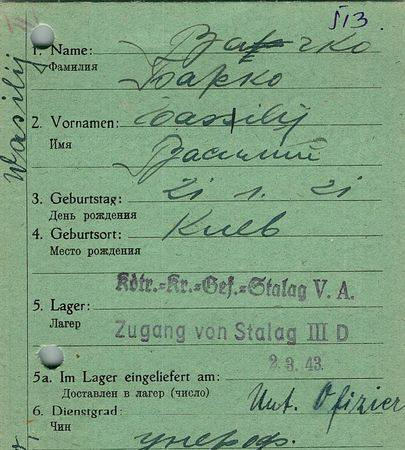 513.
1. Name:
Фамилия
Барко
2. Vornamen: Wassilij
Имя
Василий
3. Geburtstag: 21 1. 21
День рождения
4. Geburtsort: Киев
Место рождения
Kdtr.=Kr.=Gef.=Stalag V. A.
5. Lager:
Лагер
Zugang von Stalag III D
2. 3. 43.
5a. Im Lager eingeliefert am:
Доставлен в лагер (число)
6. Dienstgrad: Unt. Ofizier
Чин
Wasilij